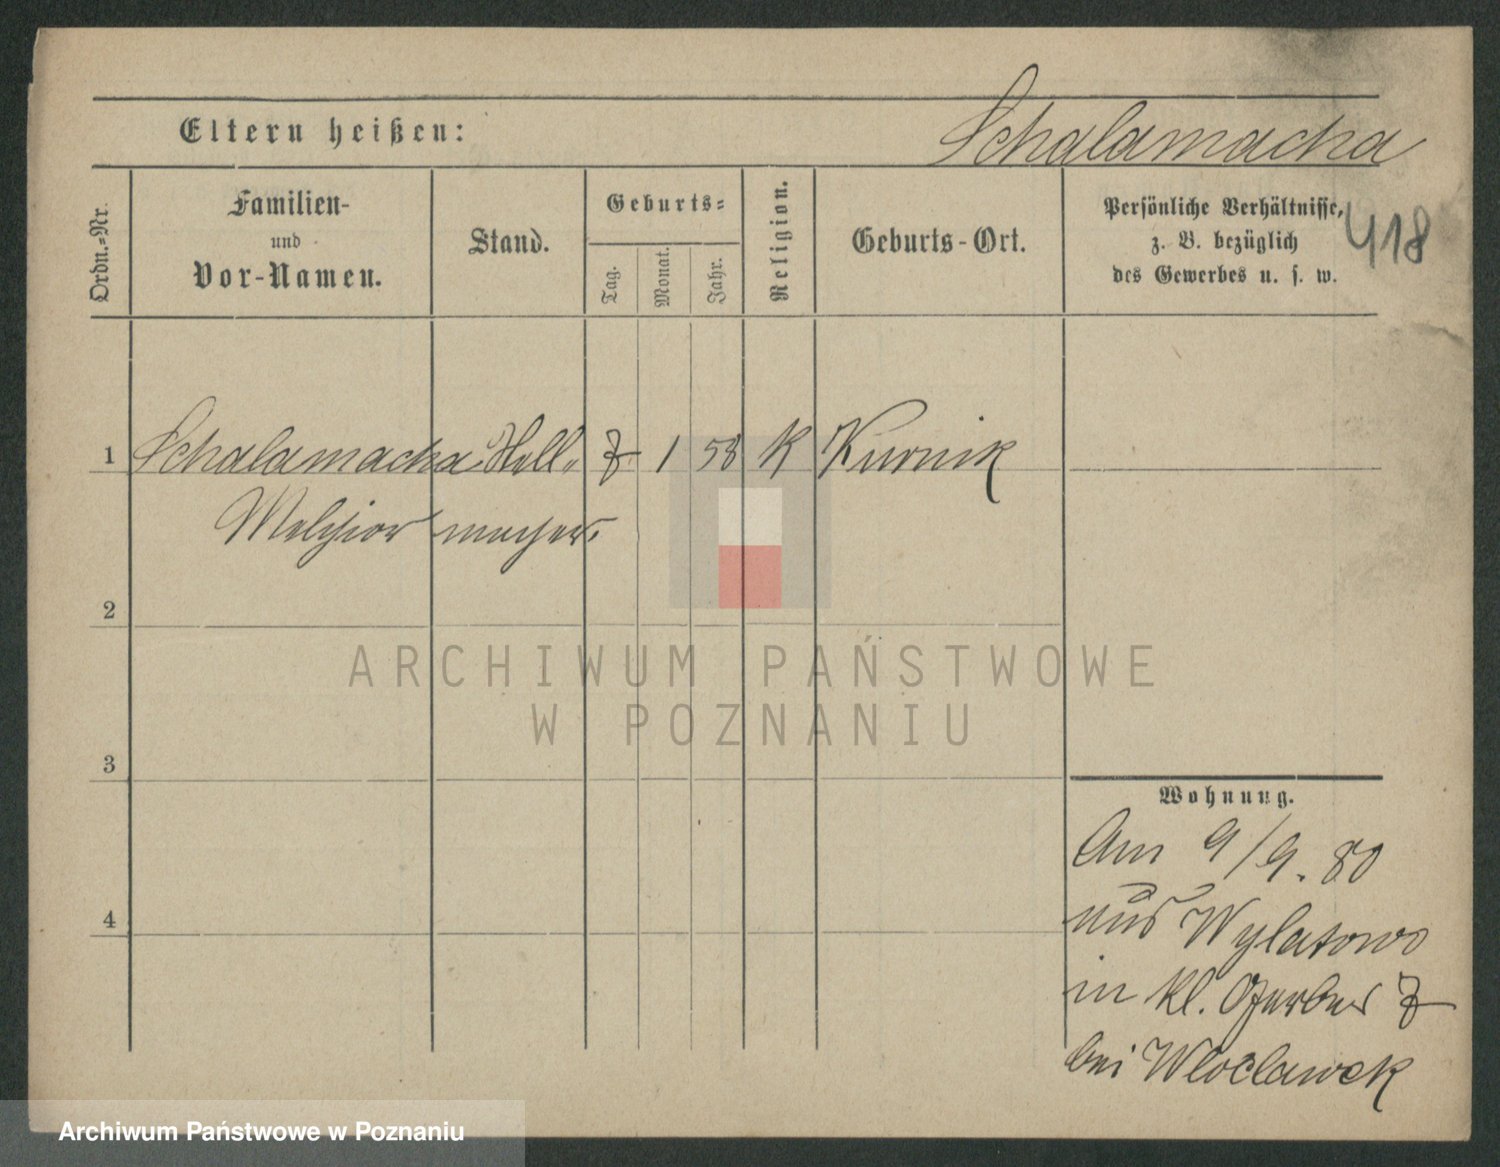 Schalamacha
Eltern heißen:
418
Ordn.=Nr.
Familien-
und
Vor-Namen.
Stand.
Geburts=
Tag.
Monat.
Jahr.
Religion.
Geburts-Ort.
Persönliche Verhältnisse,
z. B. bezüglich
des Gewerbes u. s. w.
1 Schalamacha Stell- 7 1 58 K Kurnik
Melchior macher.
2
3
4
Wohnung.
Am 9/9. 80
aus Wylatowo
in Kl. Gerber 7
bei Wloclawek
ARCHIWUM PAŃSTWOWE
W POZNANIU
Archiwum Państwowe w Poznaniu